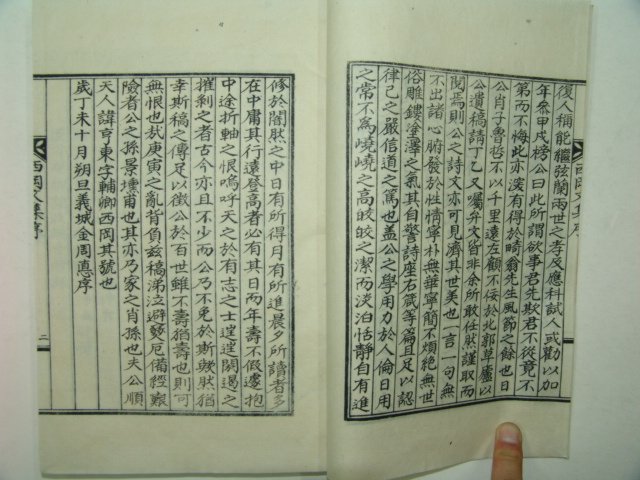 復人稱能繼弦閣兩世之孝及應科試人或勸以加
年參甲戌榜公曰此所謂欲事君先欺君不從竟不
第而不悔此亦深有得於畸翁先生風節之餘也日
公肖子魯哲不以千里遠左顧不佞於北郭草廬以
公遺稿請丁乙又囑弁文皆非余所敢任然謹取而
閱焉則公之詩文亦可見濟其世美也一言一句無
不出諸心腑發於性情寧朴無華寧簡不煩絶無世
俗雕鏤塗澤之氣其自警詩座右箴等篇且足以認
律己之嚴信道之篤也盖公之學用力於人倫日用
之常不爲嶢嶢之高皎皎之潔而淡泊恬靜自有進
西岡文集序
修於闇然之中日有所得月有所進晨夕所讀者多
在中庸其行遠登高者必有其日而年壽不假遽抱
中途折軸之恨嗚呼天之於有志之士遑遑閼遏之
摧剝之者古今亦且不少而公乃不免於斯歟然猶
幸斯稿之傳足以徵公於百世雖不壽猶壽也則可
無恨也哉庚寅之亂背負兹稿涕泣避兢厄備經艱
險者公之孫景壎甫也其亦乃家之肖孫也夫公順
天人諱亨東字輔卿西岡其號也
歲丁未十月朔旦義城金周悳序
西岡文集序
二